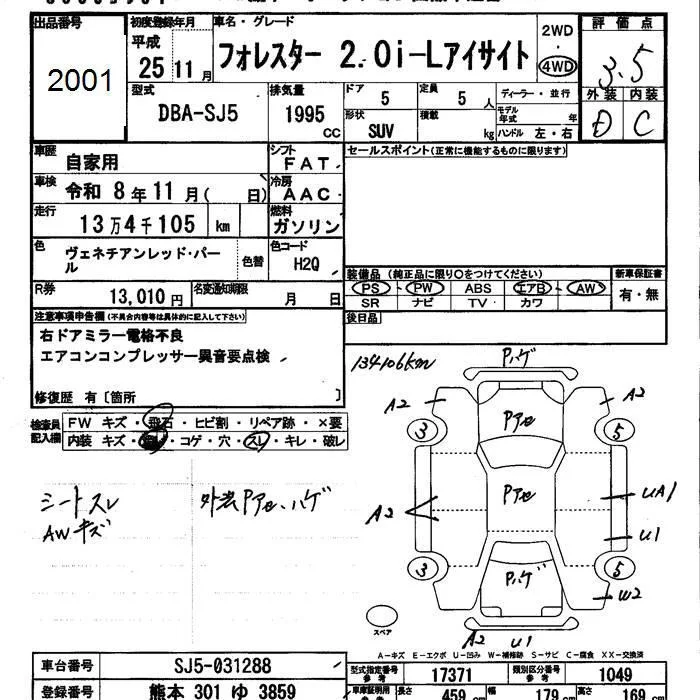 出品番号
2001
初度登録年月
平成
25 11 月
車名・グレード
フォレスター 2.0i-Lアイサイト
2WD
・
4WD
評価点
3.5
外装 内装
D C
型式
DBA-SJ5
排気量
1995
CC
ドア
5
定員
5 人
ディーラー・並行
形状
SUV
積載
kg
モデル年式 年
ハンドル 左・右
車歴
自家用
シフト
FAT
セールスポイント(正常に機能するものに限ります)
車検
令和 8 年 11 月( 日)
冷房
AAC
走行
13 万 4 千 105 km
燃料
ガソリン
色
ヴェネチアンレッド・パール
色替
色コード
H2Q
装備品 (純正品に限り○をつけてください)
新車保証書
PS ・ PW ・ ABS ・ エアB ・ AW
SR ・ ナビ ・ TV ・ カワ
有・無
R券
13,010 円
名変通知期限
月 日
後日品
注意事項申告欄(不具合内容等は具体的に記入して下さい)
右ドアミラー電格不良
エアコンコンプレッサー異音要点検
修復歴 有〔箇所 〕
検査員記入欄
FW キズ ・ 飛石 ・ ヒビ割 ・ リペア跡 ・ ×要
内装 キズ ・ ・ コゲ ・ 穴 ・ スレ ・ キレ ・ 破レ
シートスレ
AWキズ
外装Pアセ、ハゲ
134106km
Pハゲ
A2
A2
3
5
Pアセ
Pアセ
A2
UA1
U1
3
5
Pハゲ
W2
スペア
A2
U1
A-キズ E-エクボ U-凹み W-補修跡 S-サビ C-腐食 XX-交換済
車台番号
SJ5-031288
型式指定番号
参考
17371
類別区分番号
参考
1049
登録番号
熊本 301 ゆ 3859
車庫証明用
参考
長さ
459 cm
幅
179 cm
高さ
169 cm